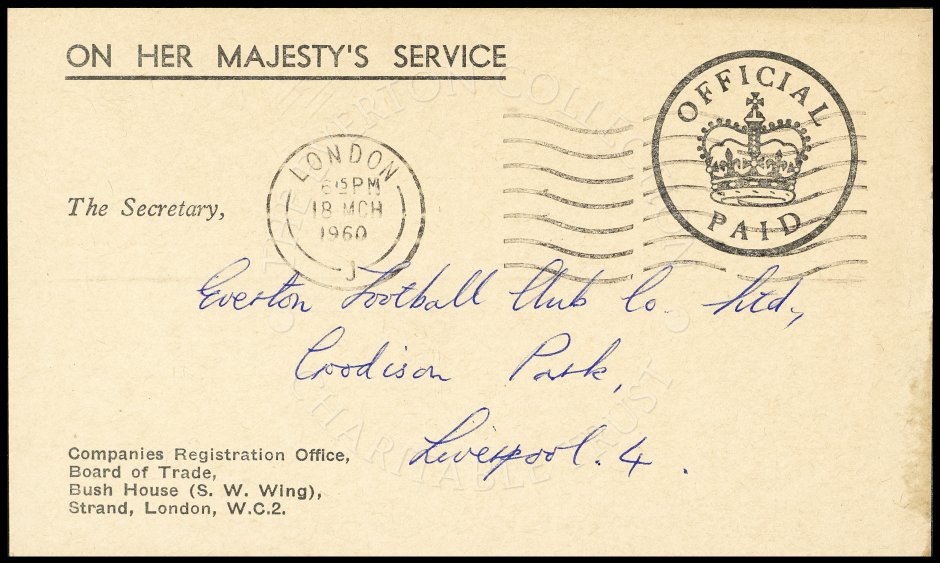 ON HER MAJESTY'S SERVICE
OFFICIAL
PAID
LONDON
PM
18 MCH
1960
J
The Secretary,
Everton Football Club Co. Ltd.,
Goodison Park,
Liverpool. 4.
Companies Registration Office,
Board of Trade,
Bush House (S. W. Wing),
Strand, London, W.C.2.
EVERTON COLLECTION
CHARITABLE TRUST